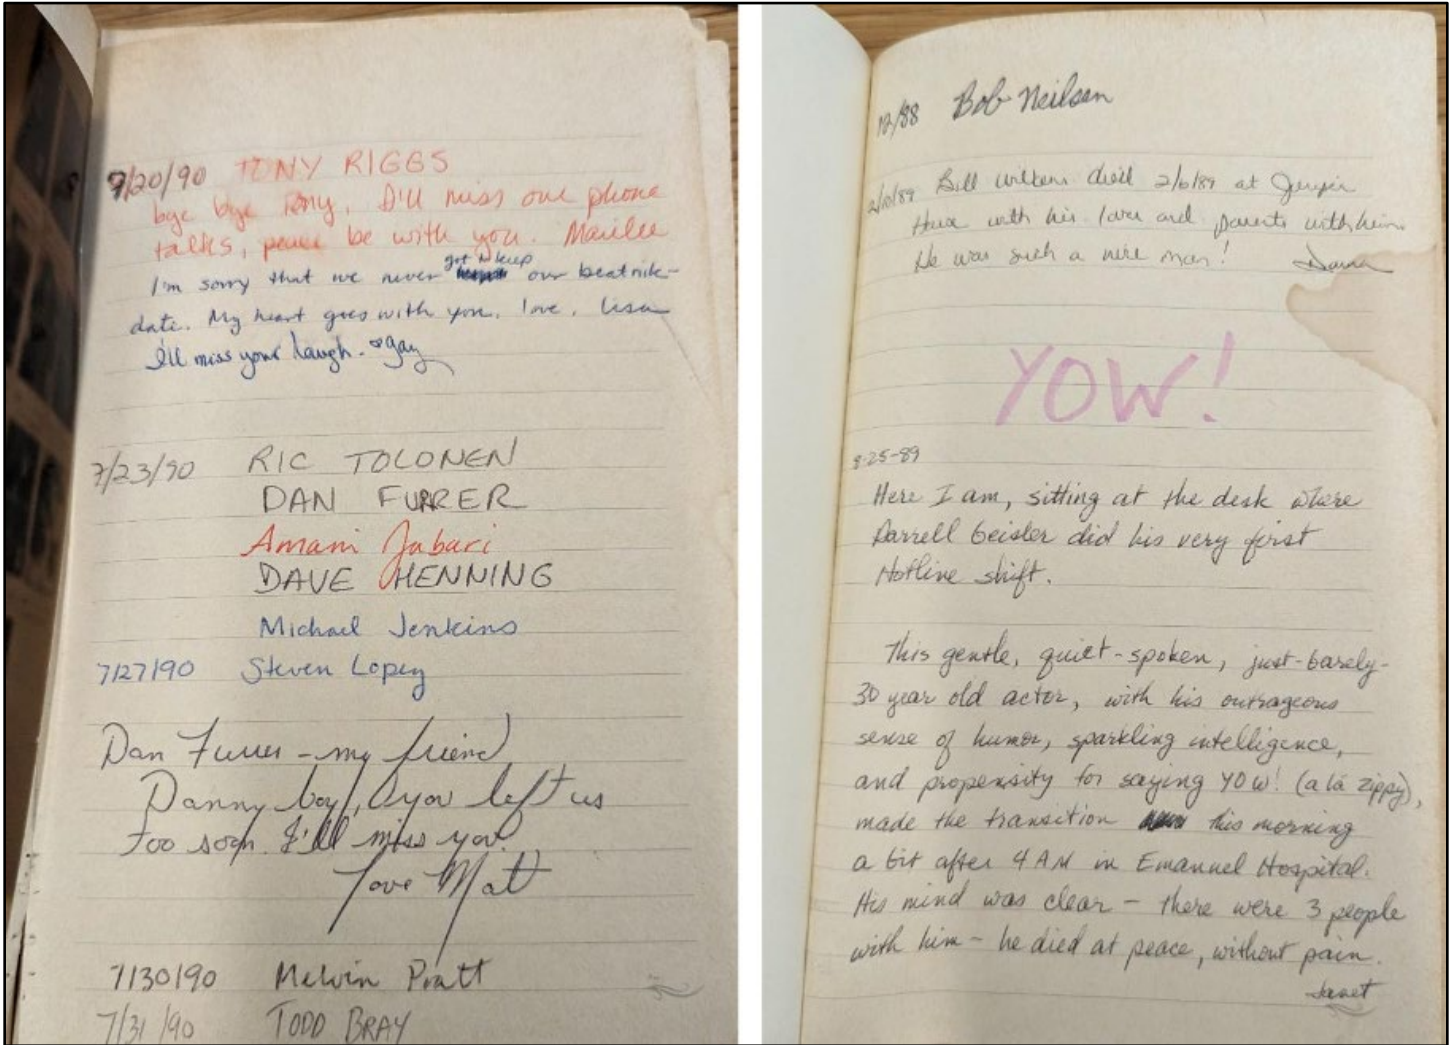 7/20/90 TONY RIGGS
bye bye Tony, I'll miss our phone
talks, peace be with you. Marilee
I'm sorry that we never got to keep our beatnik-
date. My heart goes with you. love, Lisa
I'll miss your laugh. Gay
7/23/90 RIC TOLONEN
DAN FURRER
Amani Jabari
DAVE HENNING
Michael Jenkins
7/27/90 Steven Lopez
Dan Furrer - my friend
Danny boy, you left us
too soon. I'll miss you.
Love Matt
7/30/90 Melvin Pratt
7/31/90 TODD BRAY
12/88 Bob Neilsen
2/10/89 Bill Wilkens died 2/6/89 at Juniper
House with his lover and parents with him.
He was such a nice man!
YOW!
8-25-89
Here I am, sitting at the desk where
Darrell Geisler did his very first
Hotline shift.
This gentle, quiet-spoken, just-barely-
30 year old actor, with his outrageous
sense of humor, sparkling intelligence,
and propensity for saying YOW! (a la zippy),
made the transition this morning
a bit after 4 AM in Emanuel Hospital.
His mind was clear - there were 3 people
with him - he died at peace, without pain.
Janet